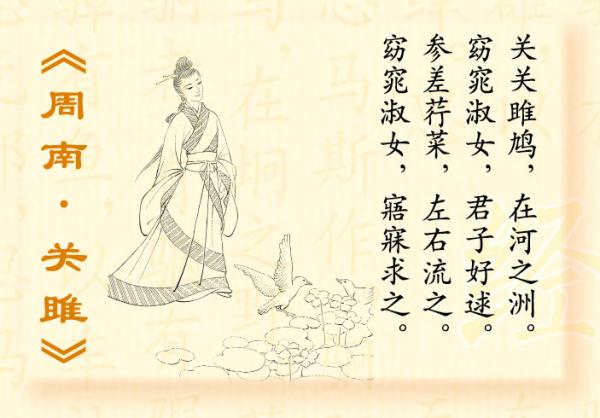 《周南·关雎》
关关雎鸠，在河之洲。
窈窕淑女，君子好逑。
参差荇菜，左右流之。
窈窕淑女，寤寐求之。